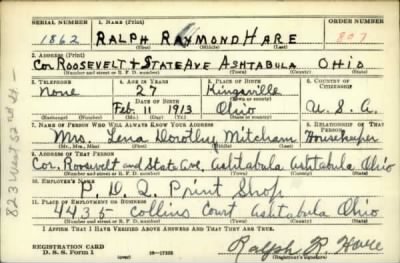 SERIAL NUMBER 1. NAME (Print) ORDER NUMBER
1862 RALPH RAYMOND HARE 807
(First) (Middle) (Last)
2. ADDRESS (Print)
Cor ROOSEVELT + STATE AVE ASHTABULA OHIO
(Number and street or R. F. D. number) (Town) (County) (State)
3. TELEPHONE 4. AGE IN YEARS 5. PLACE OF BIRTH 6. COUNTRY OF CITIZENSHIP
None 27 Kingsville
DATE OF BIRTH (Town or county)
Feb. 11 1913 Ohio U. S. A.
(Exchange) (Number) (Mo.) (Day) (Yr.) (State or country)
7. NAME OF PERSON WHO WILL ALWAYS KNOW YOUR ADDRESS 8. RELATIONSHIP OF THAT PERSON
Mrs. Lena Dorothy Mitcham Housekeeper
(Mr., Mrs., Miss) (First) (Middle) (Last)
9. ADDRESS OF THAT PERSON
Cor. Roosevelt and State Ave. Ashtabula Ashtabula Ohio
(Number and street or R. F. D. number) (Town) (County) (State)
10. EMPLOYER'S NAME
P. D. Q. Print Shop
11. PLACE OF EMPLOYMENT OR BUSINESS
4435 Collins Court Ashtabula Ohio
(Number and street or R. F. D. number) (Town) (County) (State)
I AFFIRM THAT I HAVE VERIFIED ABOVE ANSWERS AND THAT THEY ARE TRUE.
REGISTRATION CARD
D. S. S. Form 1 (over) Ralph R. Hare
(Registrant's signature)
823 West 52nd St. -